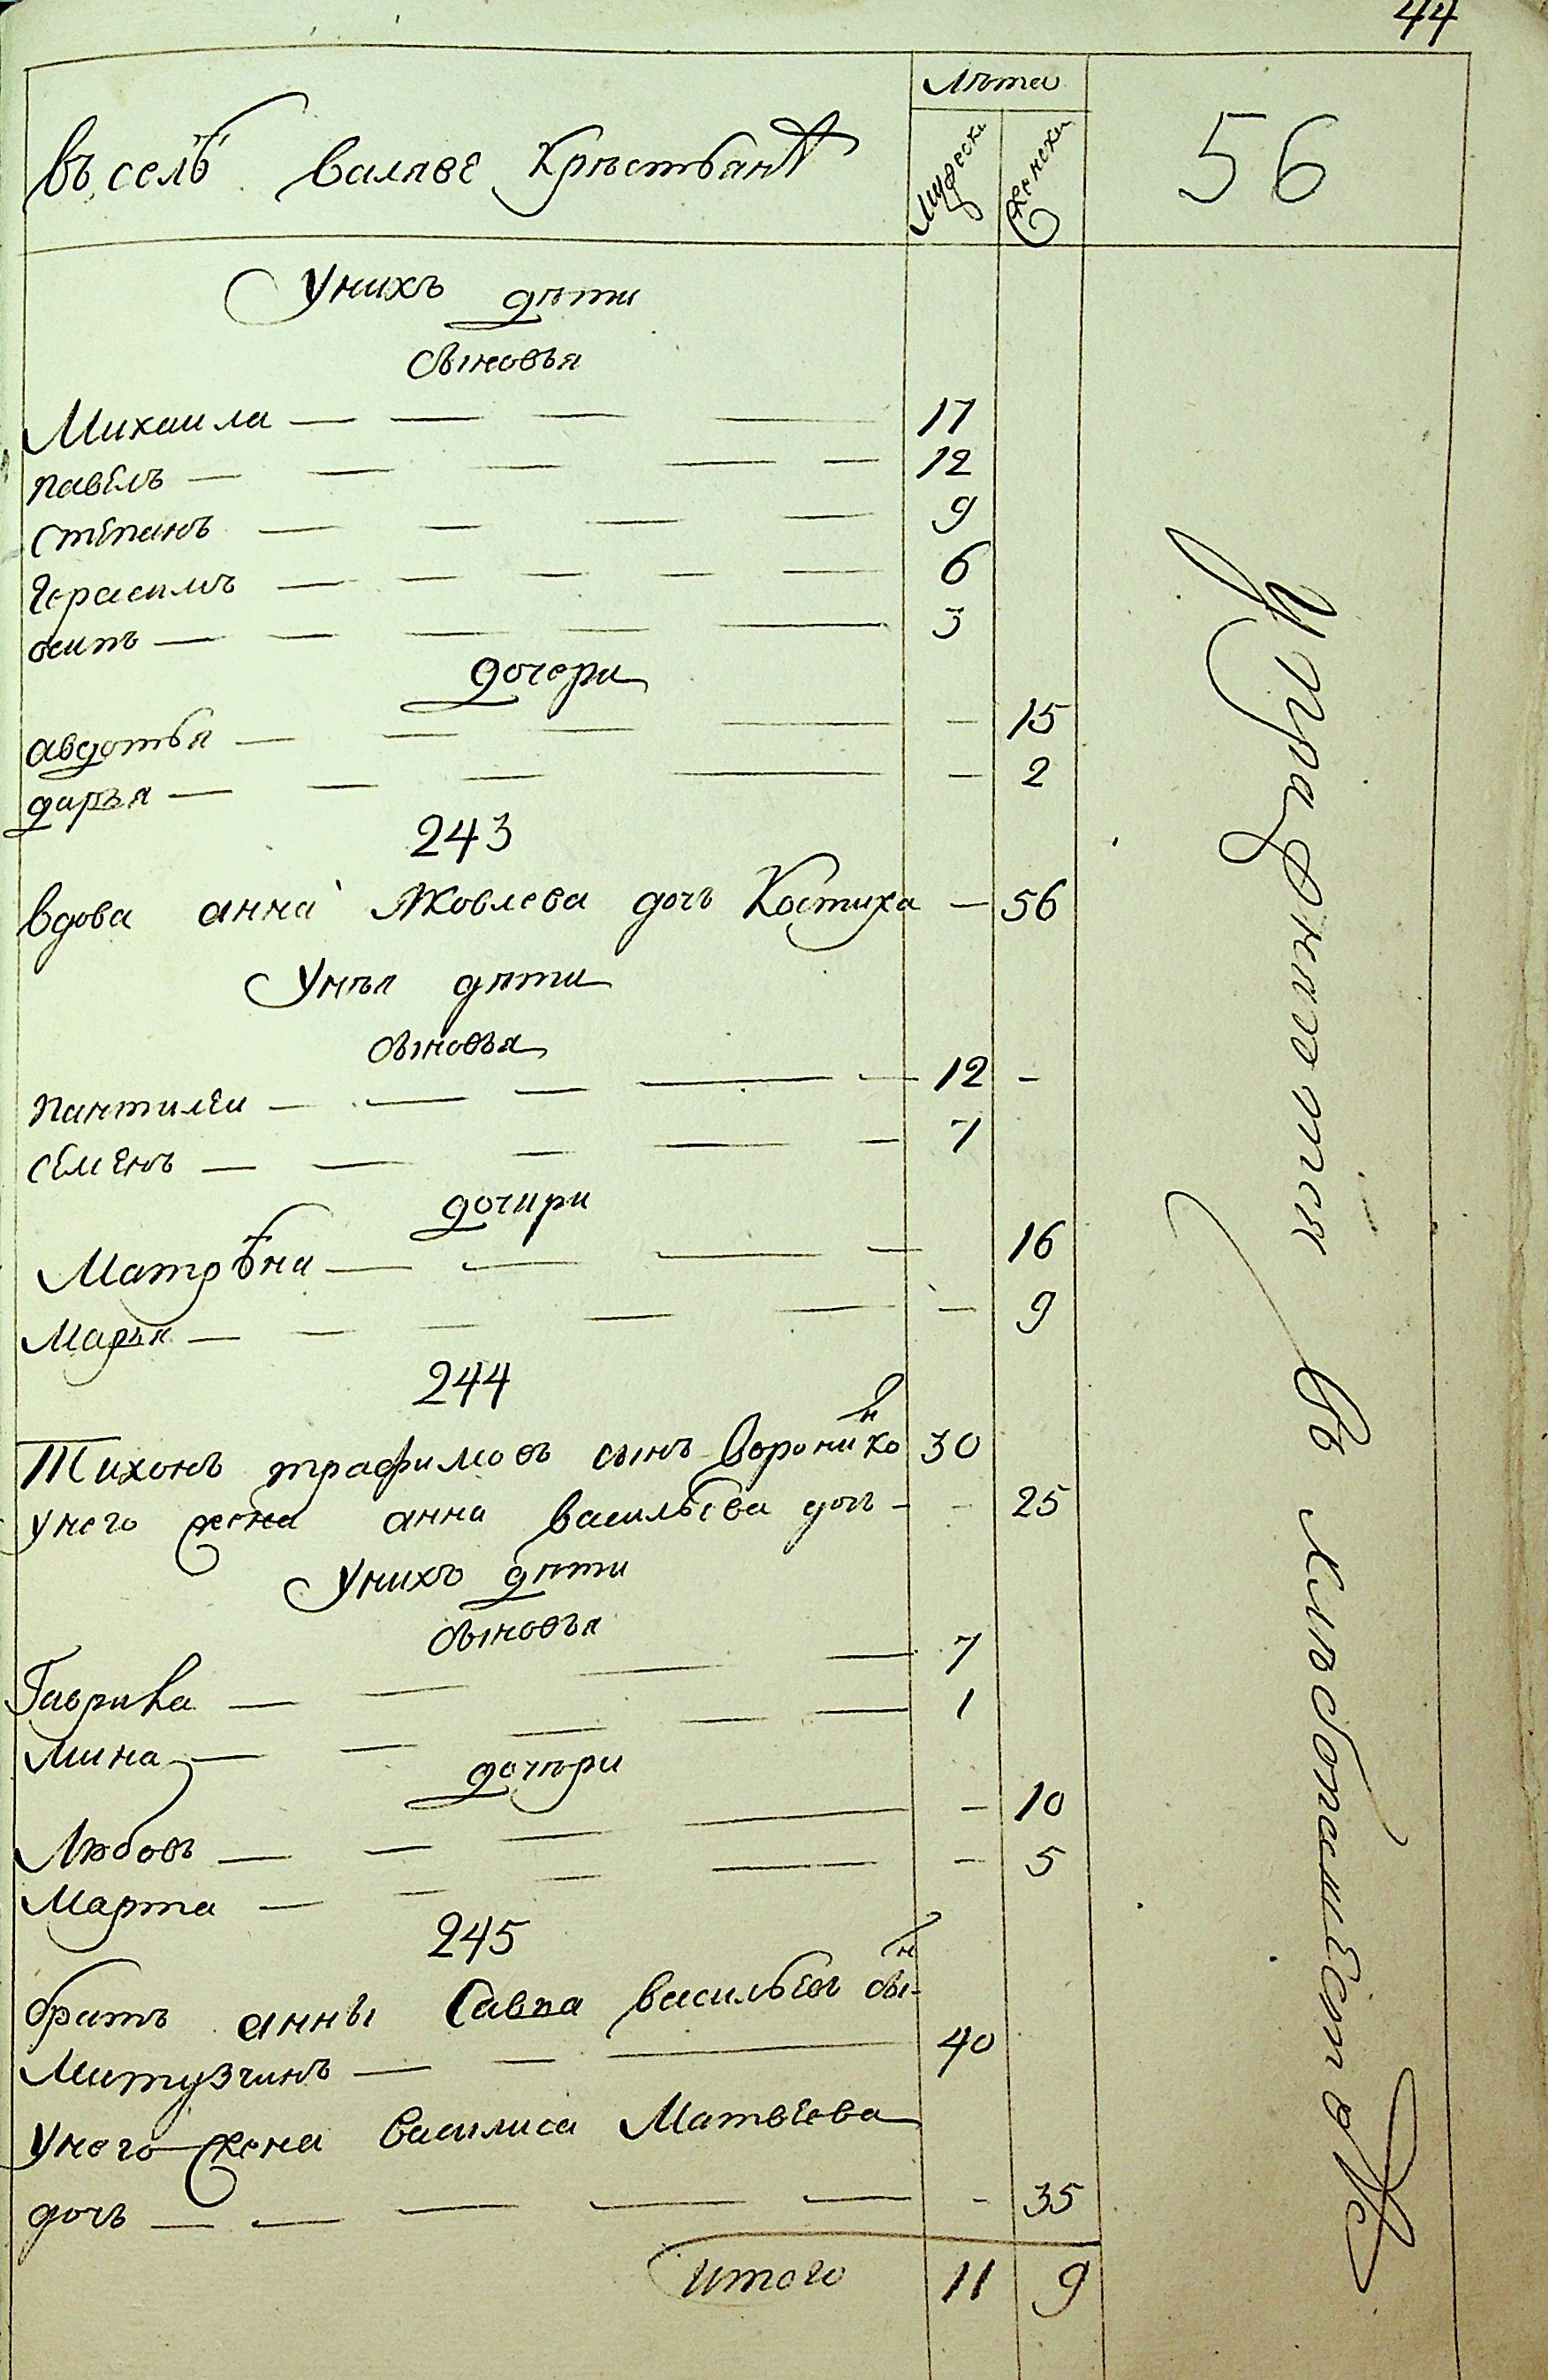 44
Лѣта
въ селѣ валяве крѣстьянъ
Мужеска
Женска
56
У нихъ дѣти
сыновья
Михаила — — — — 17
павелъ — — — — — 12
степанъ — — — — 9
Герасимъ — — — — — 6
осипъ — — — — — 3
дочери
авдотья — — — — — 15
дарья — — — — — 2
243
вдова анна Яковлева дочъ Костиха — 56
У нѣя дѣти
сыновья
пантилеи — — — — — 12 —
семенъ — — — — — 7
дочири
Матрѣна — — — — 16
Марья — — — — — — 9
244
Тихонъ трафимовъ сынъ Воронинко 30
у него жена анна васильева дочъ — — 25
У нихъ дѣти
сыновья
Гаврила — — — — 7
Мина — — — — — 1
дочѣри
Любовъ — — — — — 10
Марта — — — — — 5
245
братъ анны Савва васильевъ сынъ
Митузчинъ — — — 40
у него жена василиса Матвеева
дочъ — — — — — — 35
итого 11 9
упражнѣнтои въ хлѣбопашестве